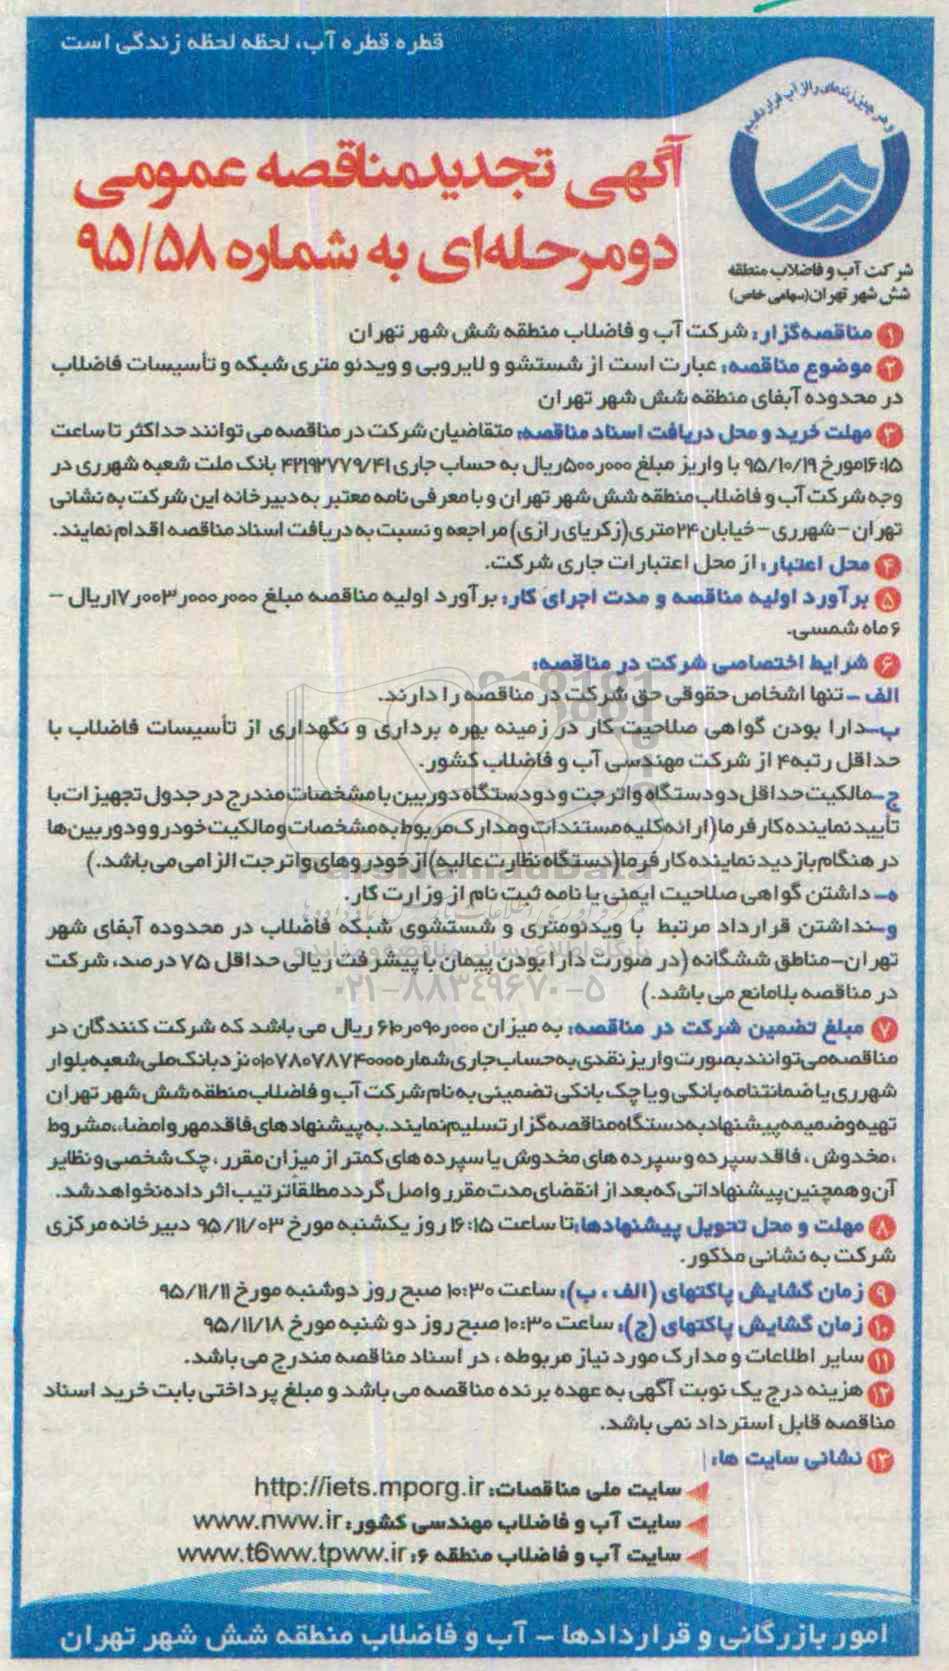 قطره قطره آب، لحظه لحظه زندگی است
و هر چیز زنده‌ای را از آب قرار دادیم
شرکت آب و فاضلاب منطقه
شش شهر تهران (سهامی خاص)
آگهی تجدیدمناقصه عمومی
دومرحله‌ای به شماره ۹۵/۵۸
۱ مناقصه‌گزار: شرکت آب و فاضلاب منطقه شش شهر تهران
۲ موضوع مناقصه: عبارت است از شستشو و لایروبی و ویدئو متری شبکه و تأسیسات فاضلاب
در محدوده آبفای منطقه شش شهر تهران
۳ مهلت خرید و محل دریافت اسناد مناقصه: متقاضیان شرکت در مناقصه می توانند حداکثر تا ساعت
۱۶:۱۵مورخ ۹۵/۱۰/۱۹ با واریز مبلغ ۵۰۰٫۰۰۰ریال به حساب جاری ۴۲۱۹۲۷۷۹/۴۱ بانک ملت شعبه شهرری در
وجه شرکت آب و فاضلاب منطقه شش شهر تهران و با معرفی نامه معتبر به دبیرخانه این شرکت به نشانی
تهران-شهرری-خیابان ۲۴متری(زکریای رازی) مراجعه و نسبت به دریافت اسناد مناقصه اقدام نمایند.
۴ محل اعتبار: از محل اعتبارات جاری شرکت.
۵ برآورد اولیه مناقصه و مدت اجرای کار: برآورد اولیه مناقصه مبلغ ۱۷٫۰۰۳٫۰۰۰٫۰۰۰ریال -
۶ماه شمسی.
۶ شرایط اختصاصی شرکت در مناقصه:
الف - تنها اشخاص حقوقی حق شرکت در مناقصه را دارند.
ب-دارا بودن گواهی صلاحیت کار در زمینه بهره برداری و نگهداری از تأسیسات فاضلاب با
حداقل رتبه۴ از شرکت مهندسی آب و فاضلاب کشور.
ج-مالکیت حداقل دو دستگاه واترجت و دودستگاه دوربین با مشخصات مندرج در جدول تجهیزات با
تأیید نماینده کارفرما (ارائه کلیه مستندات و مدارک مربوط به مشخصات و مالکیت خودرو و دوربین ها
در هنگام بازدید نماینده کارفرما(دستگاه نظارت عالیه) از خودروهای واترجت الزامی می باشد.)
ه- داشتن گواهی صلاحیت ایمنی یا نامه ثبت نام از وزارت کار.
و-نداشتن قرارداد مرتبط با ویدئومتری و شستشوی شبکه فاضلاب در محدوده آبفای شهر
تهران-مناطق ششگانه (در صورت دارا بودن پیمان با پیشرفت ریالی حداقل ۷۵ درصد، شرکت
در مناقصه بلامانع می باشد.)
۷ مبلغ تضمین شرکت در مناقصه: به میزان ۶۱۰٫۰۹۰٫۰۰۰ ریال می باشد که شرکت کنندگان در
مناقصه می توانند بصورت واریز نقدی به حساب جاری شماره ۰۱۰۷۸۰۷۸۷۴۰۰۰ نزد بانک ملی شعبه بلوار
شهرری یا ضمانتنامه بانکی و یا چک بانکی تضمینی به نام شرکت آب و فاضلاب منطقه شش شهر تهران
تهیه و ضمیمه پیشنهاد به دستگاه مناقصه گزار تسلیم نمایند. به پیشنهادهای فاقد مهر و امضاء، مشروط
، مخدوش ، فاقد سپرده و سپرده های مخدوش یا سپرده های کمتر از میزان مقرر ، چک شخصی و نظایر
آن و همچنین پیشنهاداتی که بعد از انقضای مدت مقرر واصل گردد مطلقا ترتیب اثر داده نخواهد شد.
۸ مهلت و محل تحویل پیشنهادها: تا ساعت ۱۶:۱۵ روز یکشنبه مورخ ۹۵/۱۱/۰۳ دبیرخانه مرکزی
شرکت به نشانی مذکور.
۹ زمان گشایش پاکتهای (الف ، ب): ساعت ۱۰:۳۰ صبح روز دوشنبه مورخ ۹۵/۱۱/۱۱
۱۰ زمان گشایش پاکتهای (ج): ساعت ۱۰:۳۰ صبح روز دو شنبه مورخ ۹۵/۱۱/۱۸
۱۱ سایر اطلاعات و مدارک مورد نیاز مربوطه ، در اسناد مناقصه مندرج می باشد.
۱۲ هزینه درج یک نوبت آگهی به عهده برنده مناقصه می باشد و مبلغ پرداختی بابت خرید اسناد
مناقصه قابل استرداد نمی باشد.
۱۳ نشانی سایت ها:
سایت ملی مناقصات: http://iets.mporg.ir
سایت آب و فاضلاب مهندسی کشور: www.nww.ir
سایت آب و فاضلاب منطقه ۶: www.t6ww.tpww.ir
امور بازرگانی و قراردادها - آب و فاضلاب منطقه شش شهر تهران
ParsNamadData
۰۲۱-۸۸۳۴۹۶۷۰-۵